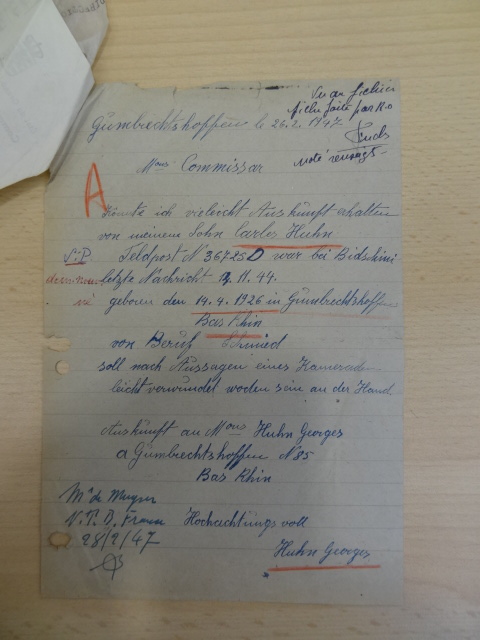 Vu au fichier
fiche faite par
Gumbrechtshoffen le 26.2.1947
noté
Mons Commissar
A
Könnte ich vieleicht Auskünft erhalten
von meinem Sohn Carles Huhn
Feldpost N° 36725D war bei
letzte Nachricht 9.11.44.
geboren den 14.4.1926 in Gumbrechtshoffen
Bas Rhin
von Beruf Schmied
soll nach Aussagen eines Kameraden
leicht verwundet woden sein an der Hand
Auskünft an Mons Huhn Georges
a Gumbrechtshoffen N 85
Bas Rhin
Mr de
V.P.D. France Hochachtungsvoll
28/2/47
Huhn Georges